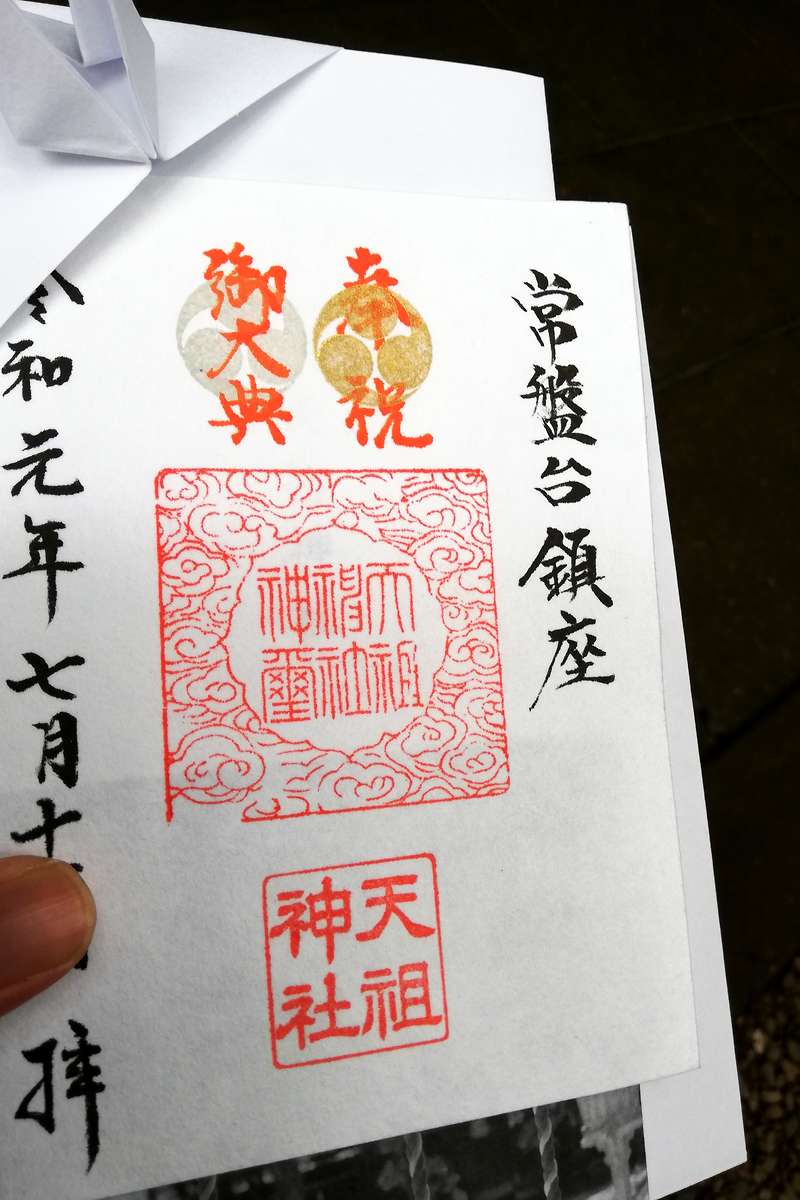 常盤台鎮座
奉祝
御大典
天祖
神社
神璽
天祖
神社
令和元年七月十
拝